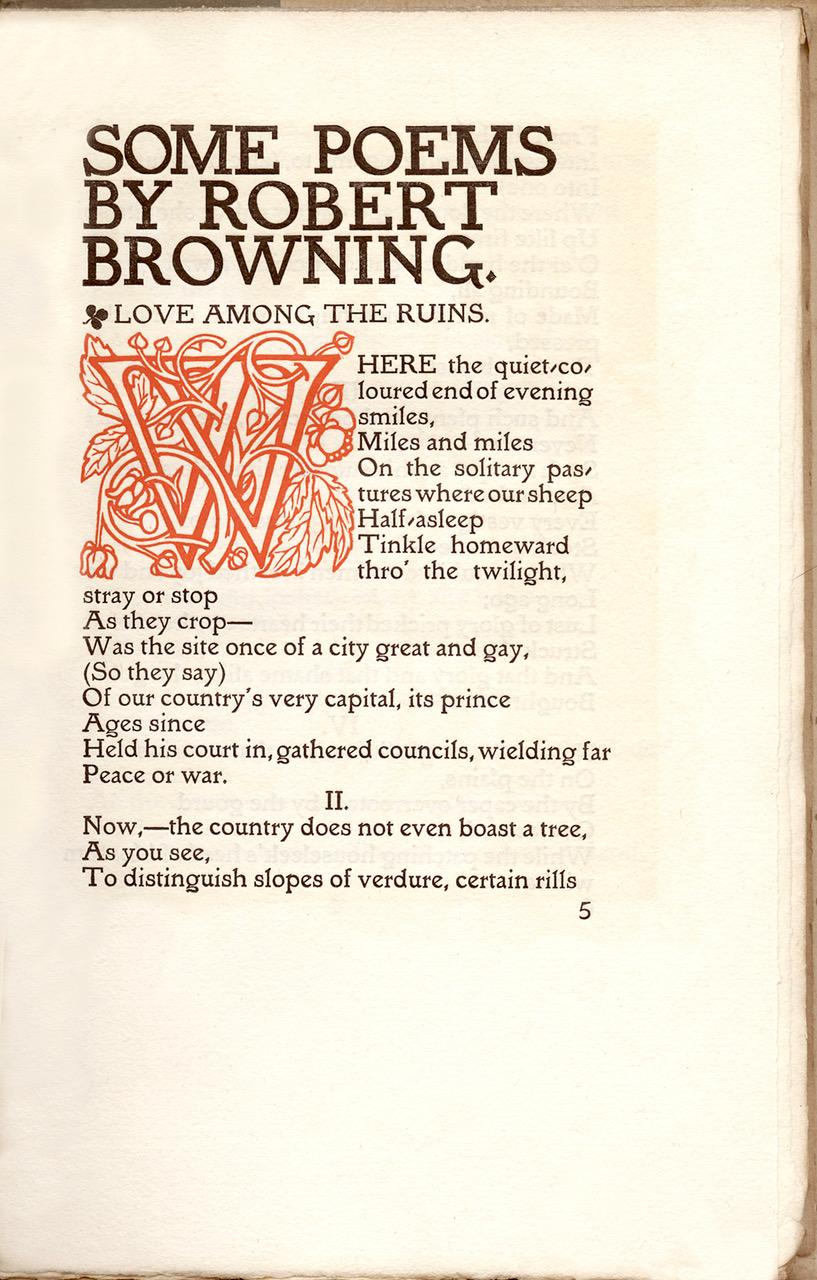 SOME POEMS
BY ROBERT
BROWNING.
LOVE AMONG THE RUINS.
WHERE the quiet-co-
loured end of evening
smiles,
Miles and miles
On the solitary pas-
tures where our sheep
Half-asleep
Tinkle homeward
thro' the twilight,
stray or stop
As they crop—
Was the site once of a city great and gay,
(So they say)
Of our country's very capital, its prince
Ages since
Held his court in, gathered councils, wielding far
Peace or war.
II.
Now,—the country does not even boast a tree,
As you see,
To distinguish slopes of verdure, certain rills
5